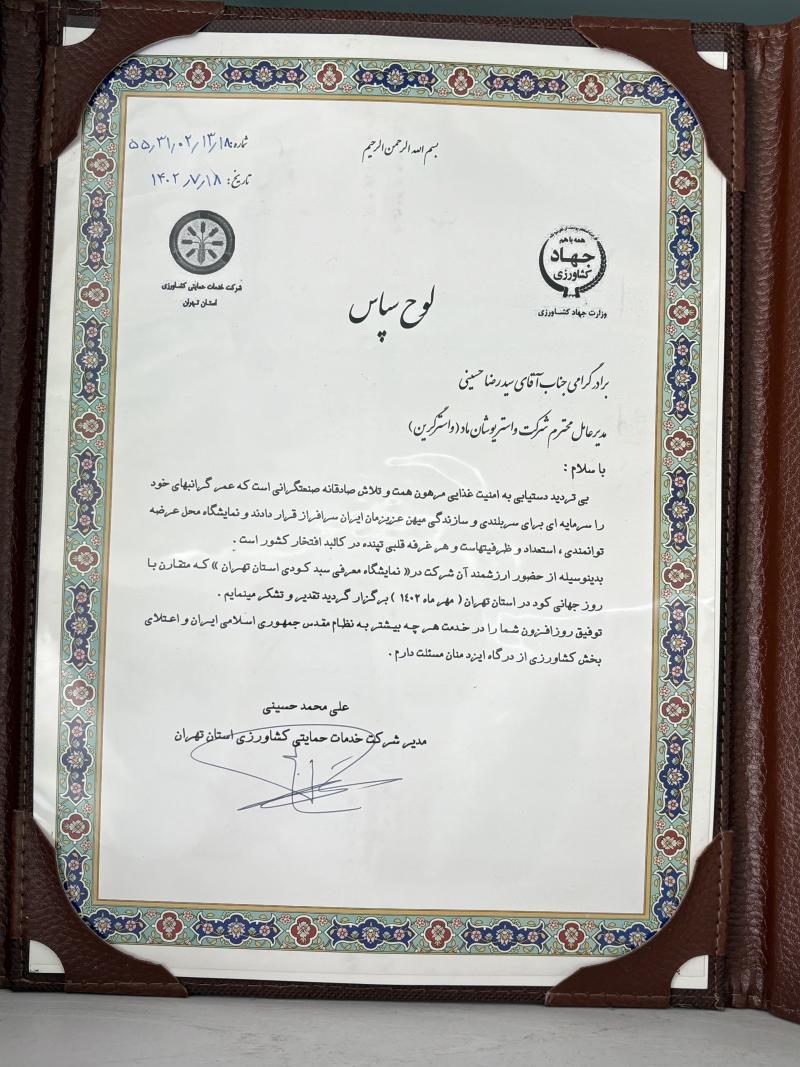 بسم الله الرحمن الرحیم
شماره: ۵۵٫۳۱٫۰۲٫۱۳٫۱۸
تاریخ: ۱۴۰۲٫۷٫۱۸
همه با هم
جهاد
کشاورزی
وزارت جهاد کشاورزی
شرکت خدمات حمایتی کشاورزی
استان تهران
لوح سپاس
برادر گرامی جناب آقای سیدرضا حسینی
مدیرعامل محترم شرکت واستریوشان ماد (واسترگرین)
با سلام :
بی تردید دستیابی به امنیت غذایی مرهون همت و تلاش صادقانه صنعتگرانی است که عمر گرانبهای خود
را سرمایه ای برای سربلندی و سازندگی میهن عزیزمان ایران سرافراز قرار دادند و نمایشگاه محل عرضه
توانمندی ، استعداد و ظرفیتهاست و هر غرفه قلبی تپنده در کالبد افتخار کشور است .
بدینوسیله از حضور ارزشمند آن شرکت در« نمایشگاه معرفی سبد کودی استان تهران » که متقارن با
روز جهانی کود در استان تهران ( مهر ماه ۱۴۰۲ ) برگزار گردید تقدیر و تشکر مینمایم .
توفیق روزافزون شما را در خدمت هر چه بیشتر به نظام مقدس جمهوری اسلامی ایران و اعتلای
بخش کشاورزی از درگاه ایزد منان مسئلت دارم .
علی محمد حسینی
مدیر شرکت خدمات حمایتی کشاورزی استان تهران